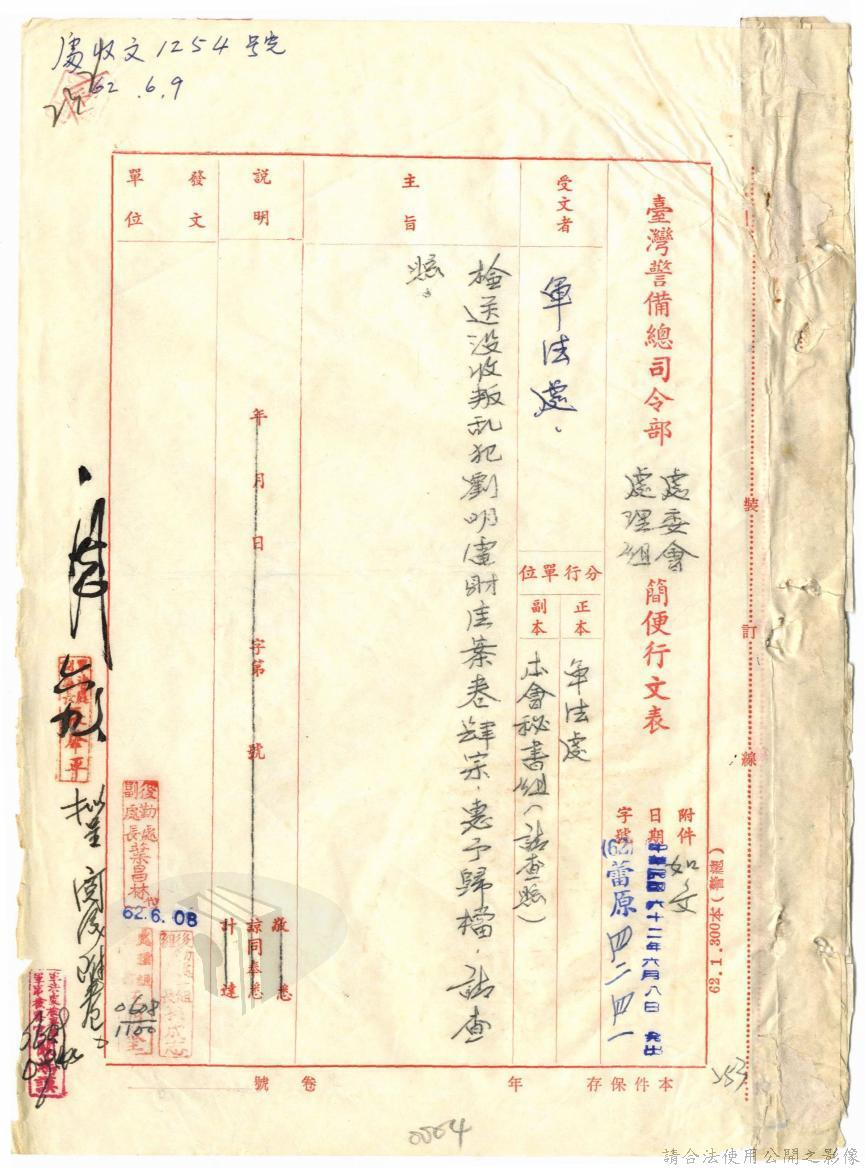 處收文1254號
62.6.9
臺灣警備總司令部
處委會
處理組
簡便行文表
附件
如文
日期
中華民國六十二年六月八日發出
字號
(62)蕾原四二四一
受文者
軍法處
分行單位
正本
軍法處
副本
本會秘書組(請查照)
主旨
檢送沒收叛乱犯劉明憲財產案卷肆宗,惠予歸檔,請查
照。
說明
年月日
字第
號
敬悉
諒同奉悉
計達
發文
單位
後勤處
副處長葉昌林
62.6.08
0608
1100
本件保存
年
卷
號
裝
訂
線
62.1.300本(警總)
253
0004
請合法使用公開之影像